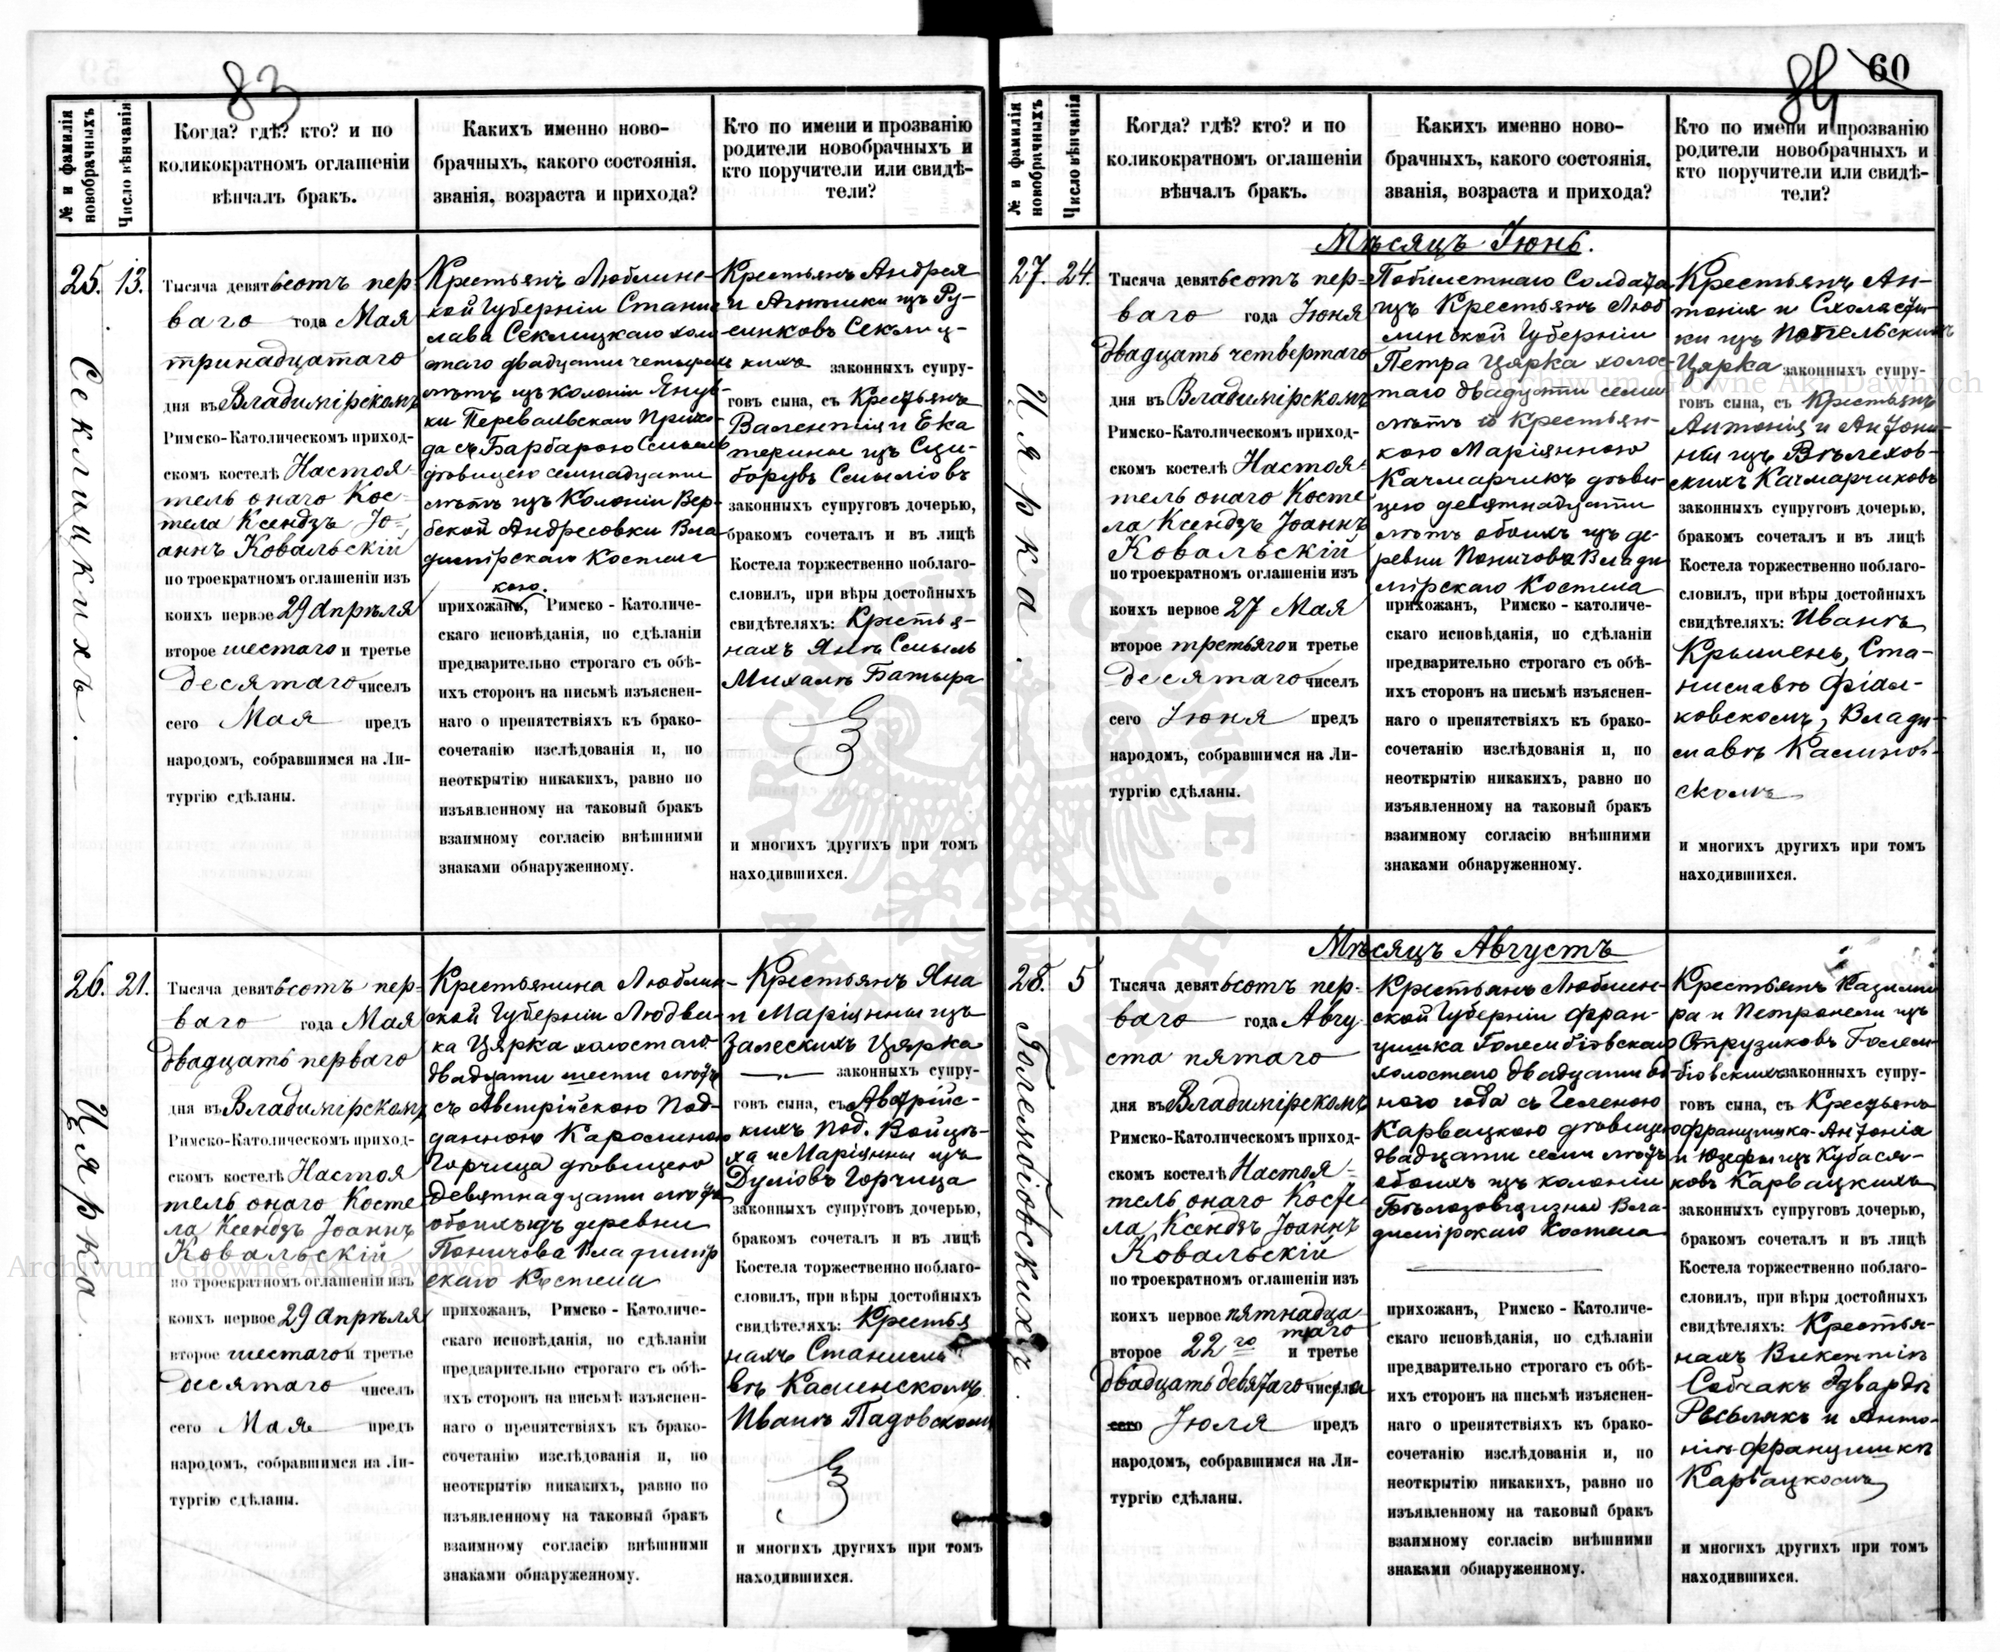 83
№ и фамилія новобрачныхъ
Число вѣнчанія
Когда? гдѣ? кто? и по
коликократномъ оглашеніи
вѣнчалъ бракъ.
Какихъ именно ново-
брачныхъ, какого состоянія.
званія, возраста и прихода?
Кто по имени и прозванію
родители новобрачныхъ и
кто поручители или свидѣ-
тели?
25. 13.
Секлицкихъ.
Тысяча девятьсотъ пер-
ваго года Мая
тринадцатаго
дня въ Владимірскомъ
Римско-Католическомъ приход-
скомъ костелѣ Настоя-
тель онаго Кос-
тела Ксендзъ Іо-
аннъ Ковальскій
по троекратномъ оглашеніи изъ
коихъ первое 29 Апрѣля
второе шестаго и третье
десятаго чиселъ
сего Мая предъ
народомъ, собравшимся на Ли-
тургію сдѣланы.
Крестьянъ Люблинс-
кой Губерніи Станис-
лава Секлицкаго холо-
стаго двадцати четырехъ
лѣтъ изъ колоніи Янув-
ки Перевальскаго Прихо-
да съ Барбарою Смыль
дѣвицею семнадцати
лѣтъ изъ Колоніи Вер-
бской Андресовки Вла-
димірскаго Костела
кою.
прихожанъ, Римско-Католиче-
скаго исповѣданія, по сдѣланіи
предварительно строгаго съ обѣ-
ихъ сторонъ на письмѣ изъяснен-
наго о препятствіяхъ къ брако-
сочетанію изслѣдованія и, по
неоткрытію никакихъ, равно по
изъявленному на таковый бракъ
взаимному согласію внѣшними
знаками обнаруженному.
Крестьянъ Андрея
и Агнешки изъ Ру-
синковъ Секлиц-
кихъ законныхъ супру-
говъ сына, съ Крестьянъ
Валентія и Ека
терины изъ Сци-
борувъ Смыліовъ
законныхъ супруговъ дочерью,
бракомъ сочеталъ и въ лицѣ
Костела торжественно поблаго-
словилъ, при вѣры достойныхъ
свидѣтеляхъ: Крестья-
нахъ Янѣ Смыль
Михалѣ Батыра
и многихъ другихъ при томъ
находившихся.
26. 21.
Цярка.
Тысяча девятьсотъ пер-
ваго года Мая
двадцать перваго
дня въ Владимірскомъ
Римско-Католическомъ приход-
скомъ костелѣ Настоя
тель онаго Косте
ла Ксендзъ Іоаннъ
Ковальскій
по троекратномъ оглашеніи изъ
коихъ первое 29 Апрѣля
второе шестаго и третье
десятаго чиселъ
сего Мая предъ
народомъ, собравшимся на Ли-
тургію сдѣланы.
Крестьянина Люблин-
ской Губерніи Людви-
ка Цярка холостаго
двадцати шести лѣтъ
съ Австрійскою Под-
данною Каролиною
Горчица дѣвицею
девятнадцати лѣтъ
обоихъ изъ деревни
Поничова Владимір
скаго Костела
прихожанъ, Римско-Католиче-
скаго исповѣданія, по сдѣланіи
предварительно строгаго съ обѣ-
ихъ сторонъ на письмѣ изъяснен-
наго о препятствіяхъ къ брако-
сочетанію изслѣдованія и, по
неоткрытію никакихъ, равно по
изъявленному на таковый бракъ
взаимному согласію внѣшними
знаками обнаруженному.
Крестьянъ Яна
и Маріянны изъ
Залескихъ Цярка
законныхъ супру-
говъ сына, съ Австрійс-
кихъ Под. Войцѣ-
ха и Маріянны изъ
Дуліовъ Горчица
законныхъ супруговъ дочерью,
бракомъ сочеталъ и въ лицѣ
Костела торжественно поблаго-
словилъ, при вѣры достойныхъ
свидѣтеляхъ: Крестья
нахъ Станисла
вѣ Калинскомъ
Иванѣ Падовскомъ
и многихъ другихъ при томъ
находившихся.
84 60
№ и фамилія новобрачныхъ
Число вѣнчанія
Когда? гдѣ? кто? и по
коликократномъ оглашеніи
вѣнчалъ бракъ.
Какихъ именно ново-
брачныхъ, какого состоянія,
званія, возраста и прихода?
Кто по имени и прозванію
родители новобрачныхъ и
кто поручители или свидѣ-
тели?
Мѣсяцъ Іюнь.
27. 24.
Цярка.
Тысяча девятьсотъ пер-
ваго года Іюня
двадцать четвертаго
дня въ Владимірскомъ
Римско-Католическомъ приход-
скомъ костелѣ Настоя-
тель онаго Косте
ла Ксендзъ Іоаннъ
Ковальскій
по троекратномъ оглашеніи изъ
коихъ первое 27 Мая
второе третьяго и третье
десятаго чиселъ
сего Іюня предъ
народомъ, собравшимся на Ли-
тургію сдѣланы.
Побилетнаго Солдата
изъ Крестьянъ Люб
линской Губерніи
Петра Цярка холос-
таго двадцати семи
лѣтъ съ Крестьян-
кою Маріянною
Качмарчикъ дѣви-
цею девятнадцати
лѣтъ обоихъ изъ де-
ревни Поничова Влади
мірскаго Костела
прихожанъ, Римско-католиче-
скаго исповѣданія, по сдѣланіи
предварительно строгаго съ обѣ-
ихъ сторонъ на письмѣ изъяснен-
наго о препятствіяхъ къ брако-
сочетанію изслѣдованія и, по
неоткрытію никакихъ, равно по
изъявленному на таковый бракъ
взаимному согласію внѣшними
знаками обнаруженному.
Крестьянъ Ан-
тонія и Схоласти-
ки изъ Попельскихъ
Цярка законныхъ супру-
говъ сына, съ Крестьянъ
Антонія и Антони-
ны изъ Вѣлехов-
скихъ Качмарчиковъ
законныхъ супруговъ дочерью,
бракомъ сочеталъ и въ лицѣ
Костела торжественно поблаго-
словилъ, при вѣры достойныхъ
свидѣтеляхъ: Иванѣ
Крышень, Ста-
ниславѣ Фіал-
ковскомъ, Влади-
славѣ Калинов-
скомъ
и многихъ другихъ при томъ
находившихся.
Мѣсяцъ Августъ
28. 5
Голембіовскихъ.
Тысяча девятьсотъ пер-
ваго года Авгу
ста пятаго
дня въ Владимірскомъ
Римско-Католическомъ приход-
скомъ костелѣ Настоя-
тель онаго Косте
ла Ксендзъ Іоаннъ
Ковальскій
по троекратномъ оглашеніи изъ
коихъ первое пятнадца
таго
второе 22го и третье
двадцать девятаго числа
сего Іюля предъ
народомъ, собравшимся на Ли-
тургію сдѣланы.
Крестьянъ Люблин-
ской Губерніи Фран-
цишка Голембіовскаго
холостаго двадцати од-
ного года съ Геленою
Карвацкою дѣвицею
двадцати семи лѣтъ
обоихъ изъ колоніи
Владимірскаго Костела
прихожанъ, Римско-Католиче-
скаго исповѣданія, по сдѣланіи
предварительно строгаго съ обѣ-
ихъ сторонъ на письмѣ изъяснен-
наго о препятствіяхъ къ брако-
сочетанію изслѣдованія и, по
неоткрытію никакихъ, равно по
изъявленному на таковый бракъ
взаимному согласію внѣшними
знаками обнаруженному.
Крестьянъ Казими
ра и Петронели изъ
Струзиковъ Голем-
біовскихъ законныхъ супру-
говъ сына, съ Крестьянъ
Францишка-Антонія
и Юзефы изъ Кубася-
ковъ Карвацкихъ
законныхъ супруговъ дочерью,
бракомъ сочеталъ и въ лицѣ
Костела торжественно поблаго-
словилъ, при вѣры достойныхъ
свидѣтеляхъ: Крестья-
нахъ Викентіи
Собчакъ Эдвардѣ
и Анто-
ніѣ Францишкѣ
Карвацкомъ
и многихъ другихъ при томъ
находившихся.
Archiwum Główne Akt Dawnych
Archiwum Główne Akt Dawnych
ARCHIWUM GŁÓWNE AKT DAWNYCH